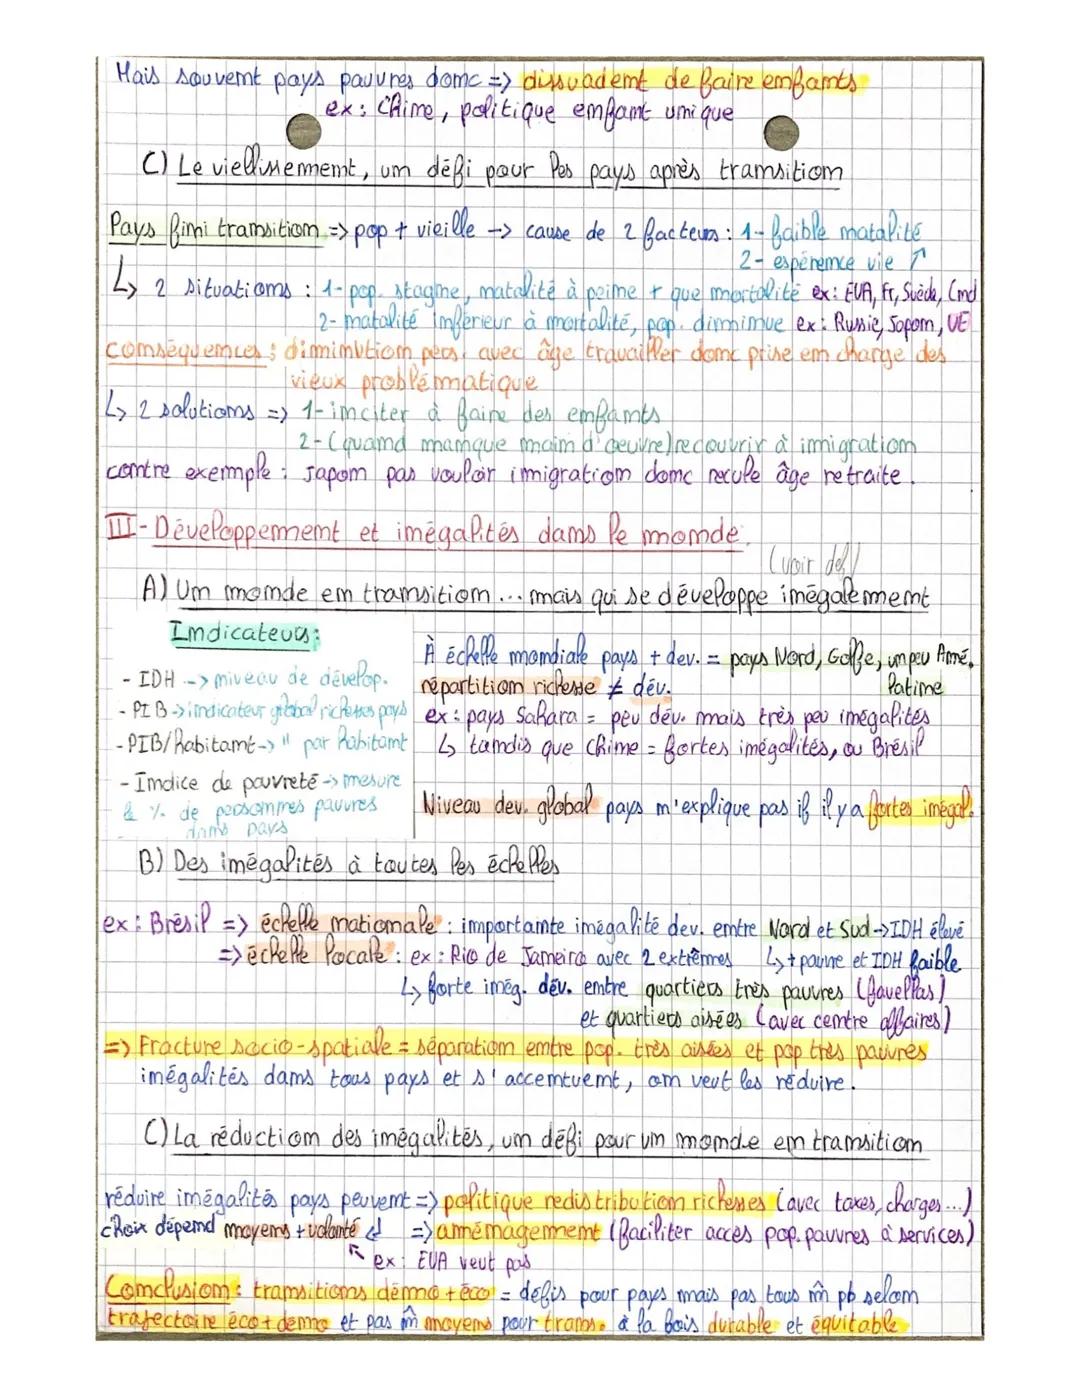 Mais souvent pays pauvres donc => dissuadent de faire enfants
ex : Chine, politique enfant unique
C) Le viellissement, un défi pour les pays après transition
Pays fini transition => pop + vieille -> cause de 2 facteurs : 1- faible natalité
2- espérence vie ↗
↳ 2 situations : 1- pop. stagne, natalité à peine + que mortalité ex : EUA, Fr, Suède, Cnd
2- natalité inférieur à mortalité, pop. diminue ex : Russie, Japon, UE
conséquences : diminution pers. avec âge travailler donc prise en charge des
vieux problématique
↳ 2 solutions => 1- inciter à faire des enfants
2- (quand manque main d'oeuvre) recouvrir à immigration
contre exemple : Japon pas vouloir imigration donc recule âge retraite.
III - Développement et inégalités dans le monde.
(voir def)
A) Un monde en transition ... mais qui se développe inégalement
Indicateurs :
- IDH -> niveau de dévelop.
- PIB -> indicateur global richesses pays
- PIB/habitant -> " par habitant
- Indice de pauvreté -> mesure
le % de personnes pauvres
dans pays
À échelle mondiale pays + dev. = pays Nord, Golfe, un peu Amé.
répartition richesse ≠ dév. latine
ex : pays Sahara = peu dév. mais très peu inégalités
↳ tandis que Chine = fortes inégalités, ou Brésil
Niveau dev. global pays n'explique pas if il y a fortes inégal.
B) Des inégalités à toutes les échelles
ex : Brésil => échelle nationale : importante inégalité dev. entre Nord et Sud -> IDH élevé
=> échelle locale : ex : Rio de Janeiro avec 2 extrêmes ↳ + pauvre et IDH faible
↳ forte inég. dév. entre quartiers très pauvres (favellas)
et quartiers aisées (avec centre affaires)
=> Fracture socio-spatiale = séparation entre pop. très aisées et pop très pauvres
inégalités dans tous pays et s'accentuent, on veut les réduire.
C) La réduction des inégalités, un défi pour un monde en transition
réduire inégalités pays peuvent => politique redistribution richesses (avec taxes, charges...)
choix dépend moyens + volonté ↲ => aménagement (faciliter accès pop. pauvres à services)
↖ ex : EUA veut pas
Conclusion : transitions démo + éco = défis pour pays mais pas tous m̂ pb selon
trajectoire éco + démo et pas m̂ moyens pour trans. à la fois durable et équitable